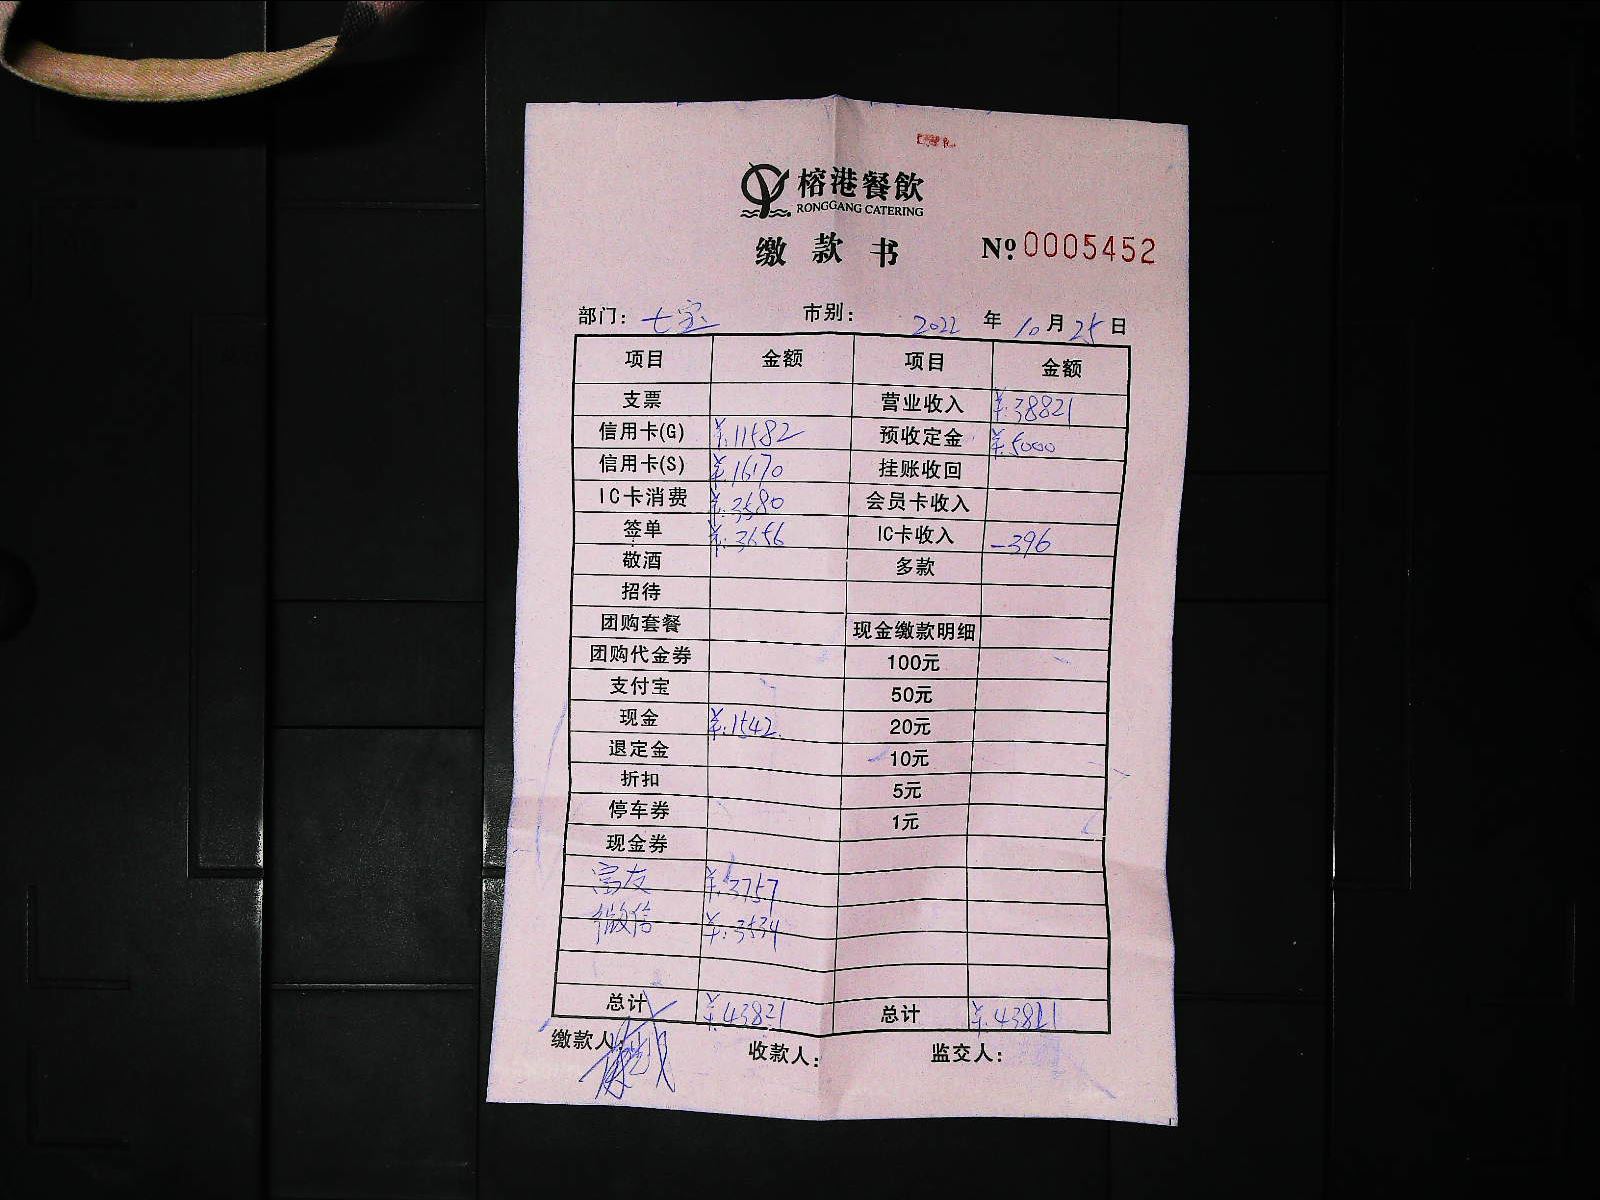 榕港餐飲
RONGGANG CATERING
缴款书 №:0005452
部门: 七宝 市别: 2022 年 10 月 25 日
项目 金额 项目 金额
支票 营业收入 ¥:38821
信用卡(G) ¥:11582 预收定金 ¥:5000
信用卡(S) ¥:16170 挂账收回
IC卡消费 ¥:3580 会员卡收入
签单 ¥:3656 IC卡收入 -396
敬酒 多款
招待
团购套餐 现金缴款明细
团购代金券 100元
支付宝 50元
现金 ¥:1542 20元
退定金 10元
折扣 5元
停车券 1元
现金券
富友 ¥:3757
微信 ¥:3534
总计 ¥:43821 总计 ¥:43821
缴款人: 收款人: 监交人: